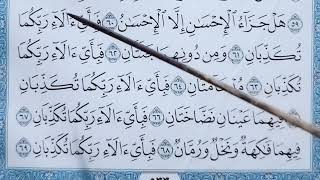 ٥٩ هَلْ جَزَآءُ ٱلْإِحْسَٰنِ إِلَّا ٱلْإِحْسَٰنُ ٦٠ فَبِأَىِّ ءَالَآءِ رَبِّكُمَا
تُكَذِّبَانِ ٦١ وَمِن دُونِهِمَا جَنَّتَانِ ٦٢ فَبِأَىِّ ءَالَآءِ رَبِّكُمَا
تُكَذِّبَانِ ٦٣ مُدْهَآمَّتَانِ ٦٤ فَبِأَىِّ ءَالَآءِ رَبِّكُمَا تُكَذِّبَانِ
٦٥ فِيهِمَا عَيْنَانِ نَضَّاخَتَانِ ٦٦ فَبِأَىِّ ءَالَآءِ رَبِّكُمَا تُكَذِّبَانِ ٦٧
فِيهِمَا فَٰكِهَةٌ وَنَخْلٌ وَرُمَّانٌ ٦٨ فَبِأَىِّ ءَالَآءِ رَبِّكُمَا تُكَذِّبَانِ ٦٩